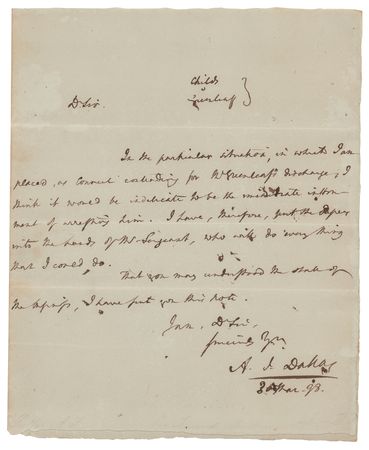 Childs
v
Greenleaf }
Dr Sir.
In the particular situation, in which I am
placed, as Counsel contending for Mr Greenleaf's discharge, I
think it would be indelicate to be the immediate instru-
ment of arresting him. I have, therefore, put the Papers
into the hands of Mr Sergeant, who will do every thing
that I could do.
That you may understand the state of
the business, I have sent you this note.
I am, Dr Sir,
sincerely Yrs
A. J. Dallas
Mar. 98.